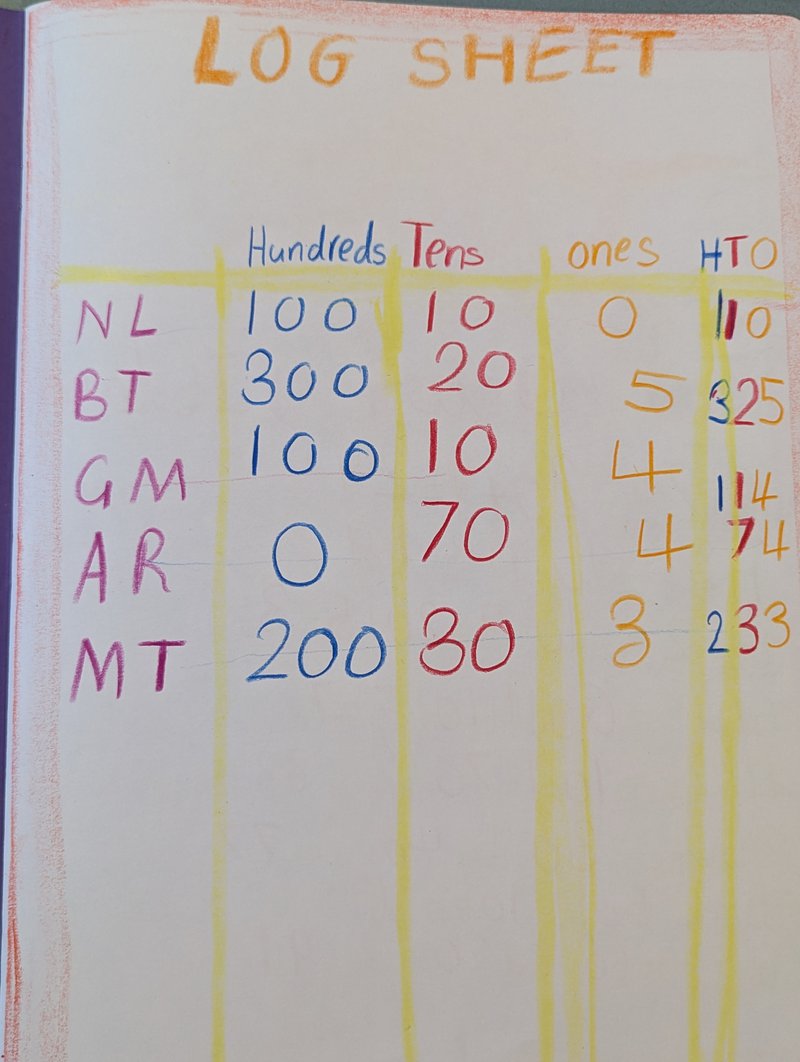 LOG SHEET
Hundreds Tens ones HTO
NL 100 10 0 110
BT 300 20 5 325
GM 100 10 4 114
AR 0 70 4 74
MT 200 30 3 233